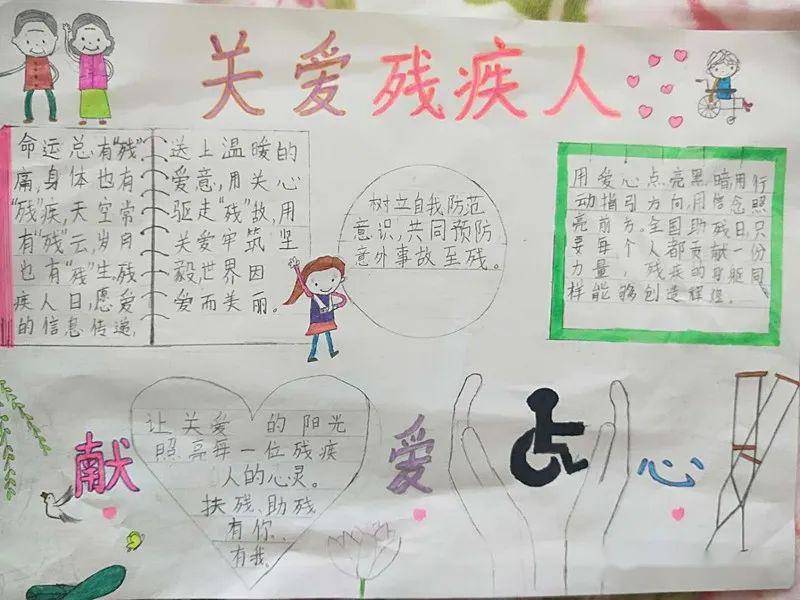 关爱残疾人
命运总有“残”
痛,身体也有
“残”疾,天空常
有“残”云,岁月
也有“残”生,残
疾人日,愿爱
的信息传递,
送上温暖的
爱意,用关心
驱走“残”敌,用
关爱牢筑坚
毅,世界因
爱而美丽。
树立自我防范
意识,共同预防
意外事故至残。
用爱心点亮黑暗,用行
动指引方向,用信念照
亮前方。全国助残日,只
要每个人都贡献一份
力量,残疾的身躯同
样能够创造辉煌。
献爱心
让关爱的阳光
照亮每一位残疾
人的心灵。
扶残、助残
有你、
有我。